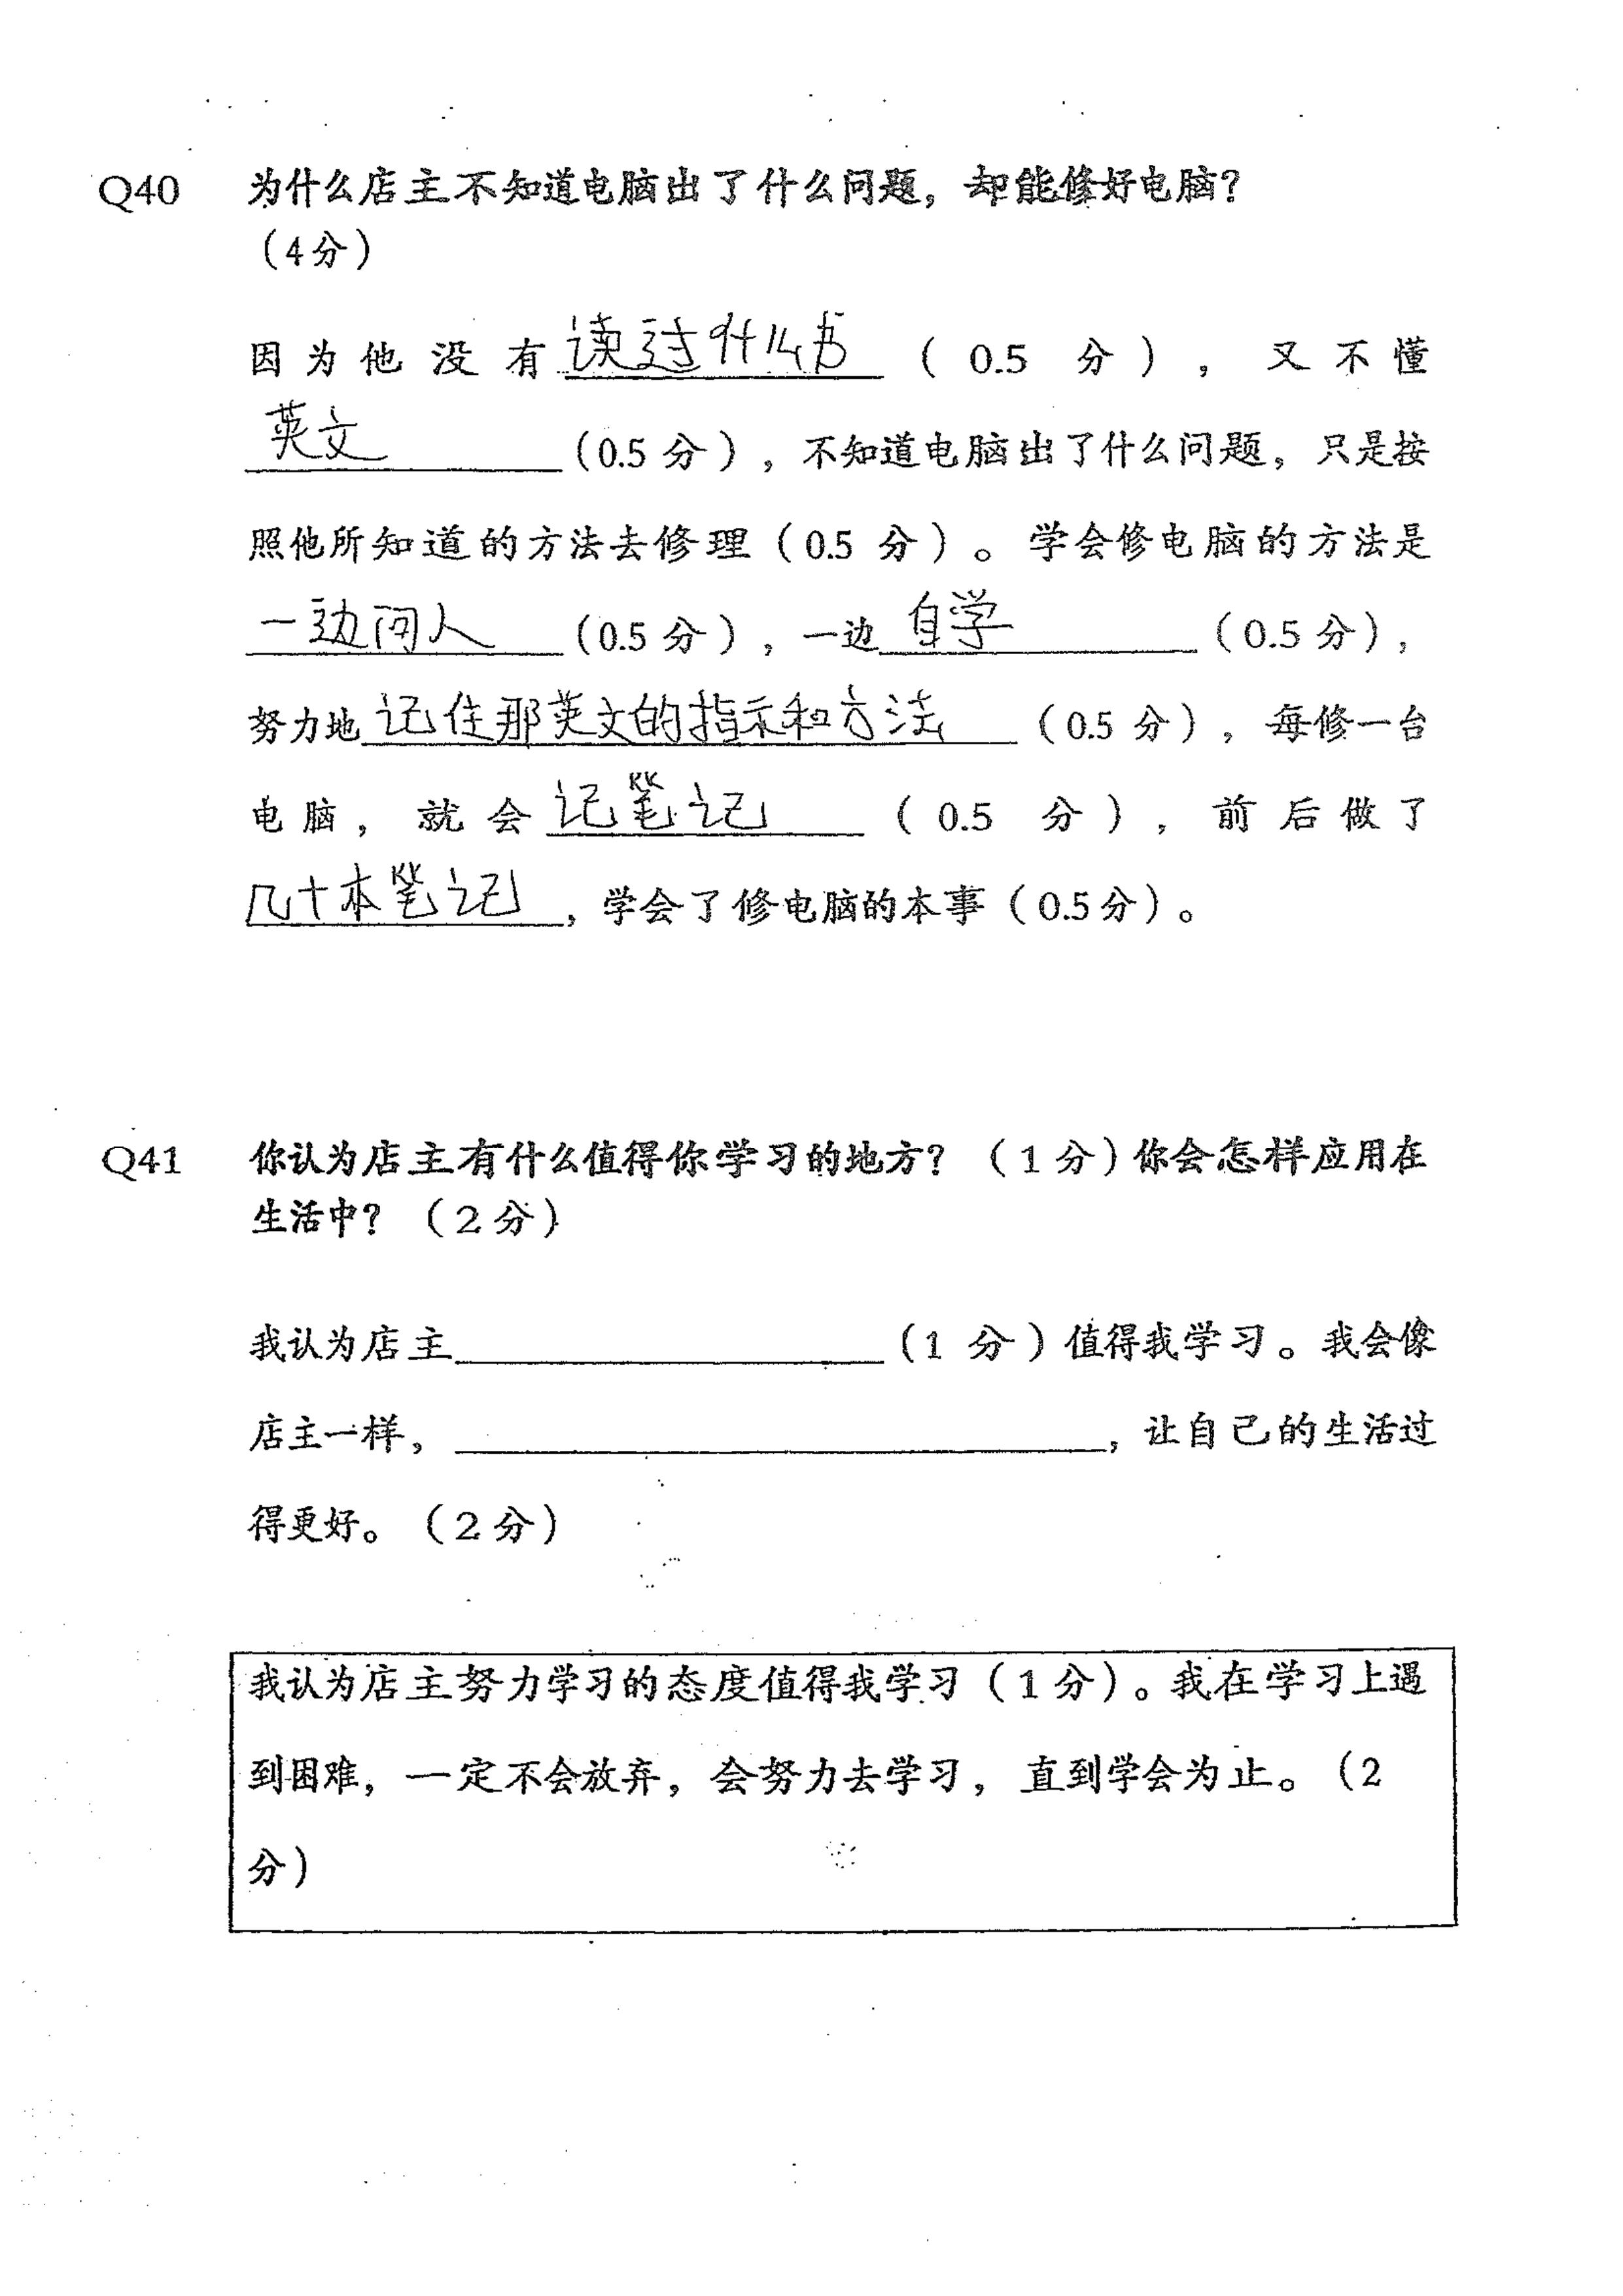 Q40 为什么店主不知道电脑出了什么问题，却能修好电脑？
（4分）
因为他没有读过什么书（0.5 分），又不懂
英文（0.5 分），不知道电脑出了什么问题，只是按
照他所知道的方法去修理（0.5 分）。学会修电脑的方法是
一边问人（0.5 分），一边自学（0.5 分），
努力地记住那英文的指示和方法（0.5 分），每修一台
电脑，就会记笔记（0.5 分），前后做了
几十本笔记，学会了修电脑的本事（0.5分）。
Q41 你认为店主有什么值得你学习的地方？（1分）你会怎样应用在
生活中？（2分）
我认为店主____（1 分）值得我学习。我会像
店主一样，____，让自己的生活过
得更好。（2分）
我认为店主努力学习的态度值得我学习（1分）。我在学习上遇
到困难，一定不会放弃，会努力去学习，直到学会为止。（2
分）